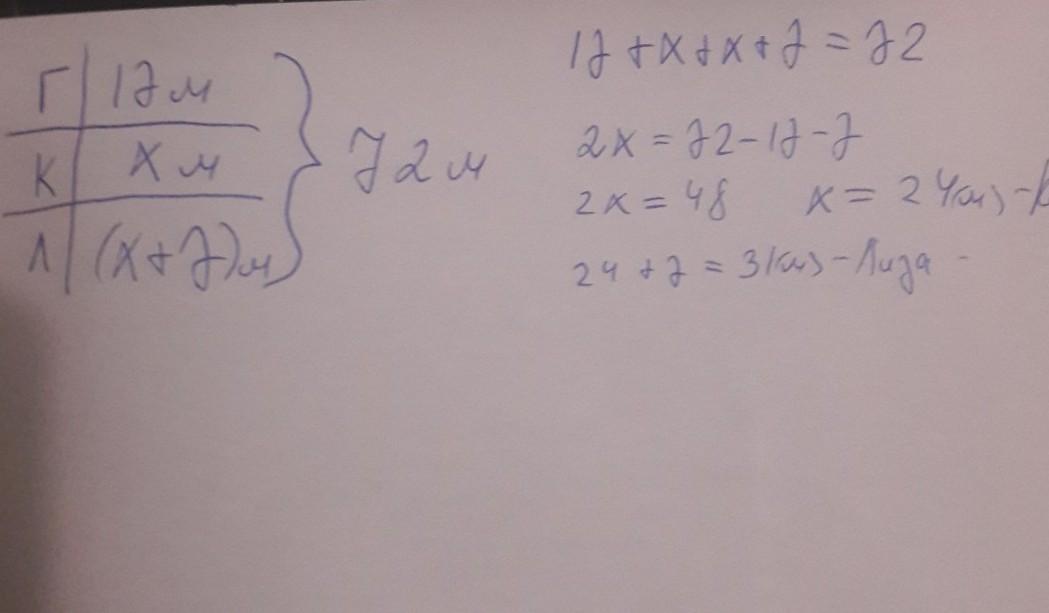 Г | 17 м
К | x м
Л | (x+7)м
} 72 м
17 + x + x + 7 = 72
2x = 72 - 17 - 7
2x = 48 x = 24(м) - К
24 + 7 = 31(м) - Лида -